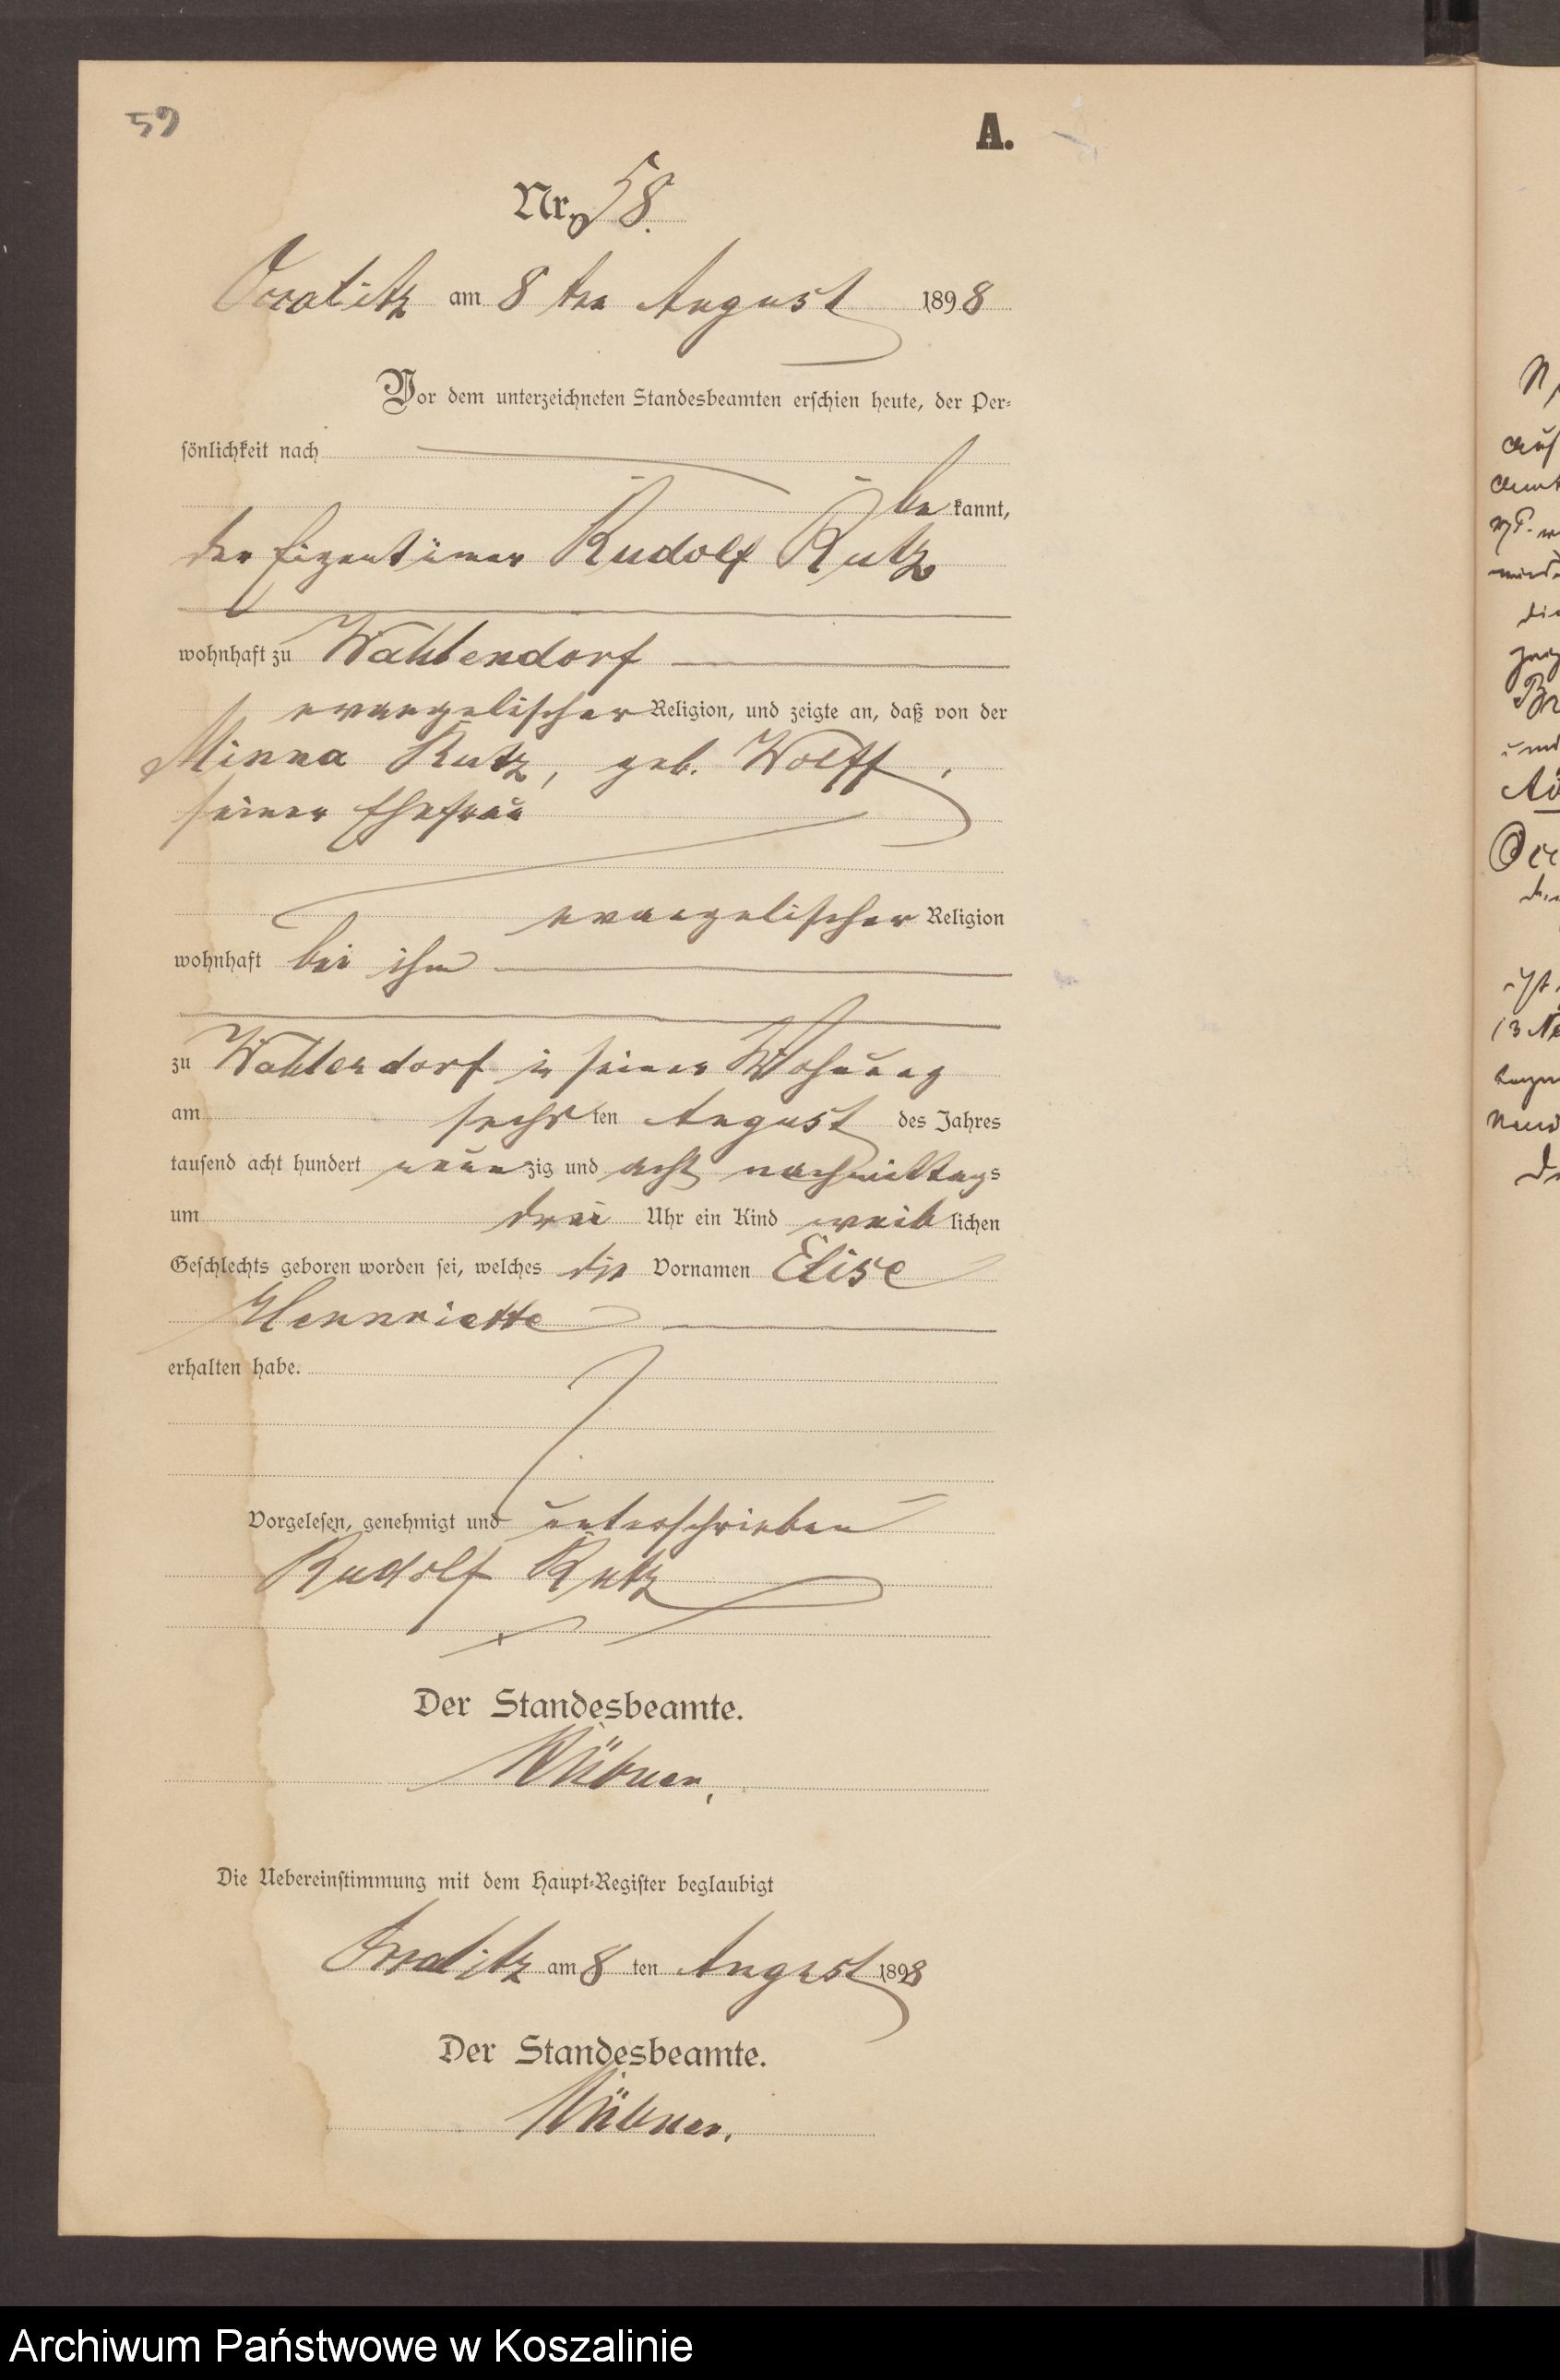 59
A.
Nr. 58.
am 8 ten August 1898
Vor dem unterzeichneten Standesbeamten erschien heute, der Per-
sönlichkeit nach
be kannt,
der Eigentümer Rudolf Rutz
wohnhaft zu Wahlendorf
evangelischer Religion, und zeigte an, daß von der
Minna Rutz, geb. Wolff,
seiner Ehefrau
evangelischer Religion
wohnhaft bei ihm
zu Wahlendorf in seiner Wohnung
am sechs ten August des Jahres
tausend acht hundert neun zig und acht nachmittags
um drei Uhr ein Kind weib lichen
Geschlechts geboren worden sei, welches die Vornamen Elise
Hennriette
erhalten habe.
Vorgelesen, genehmigt und unterschrieben
Rudolf Rutz
Der Standesbeamte.
Die Uebereinstimmung mit dem Haupt-Register beglaubigt
am 8 ten August 1898
Der Standesbeamte.
Archiwum Państwowe w Koszalinie